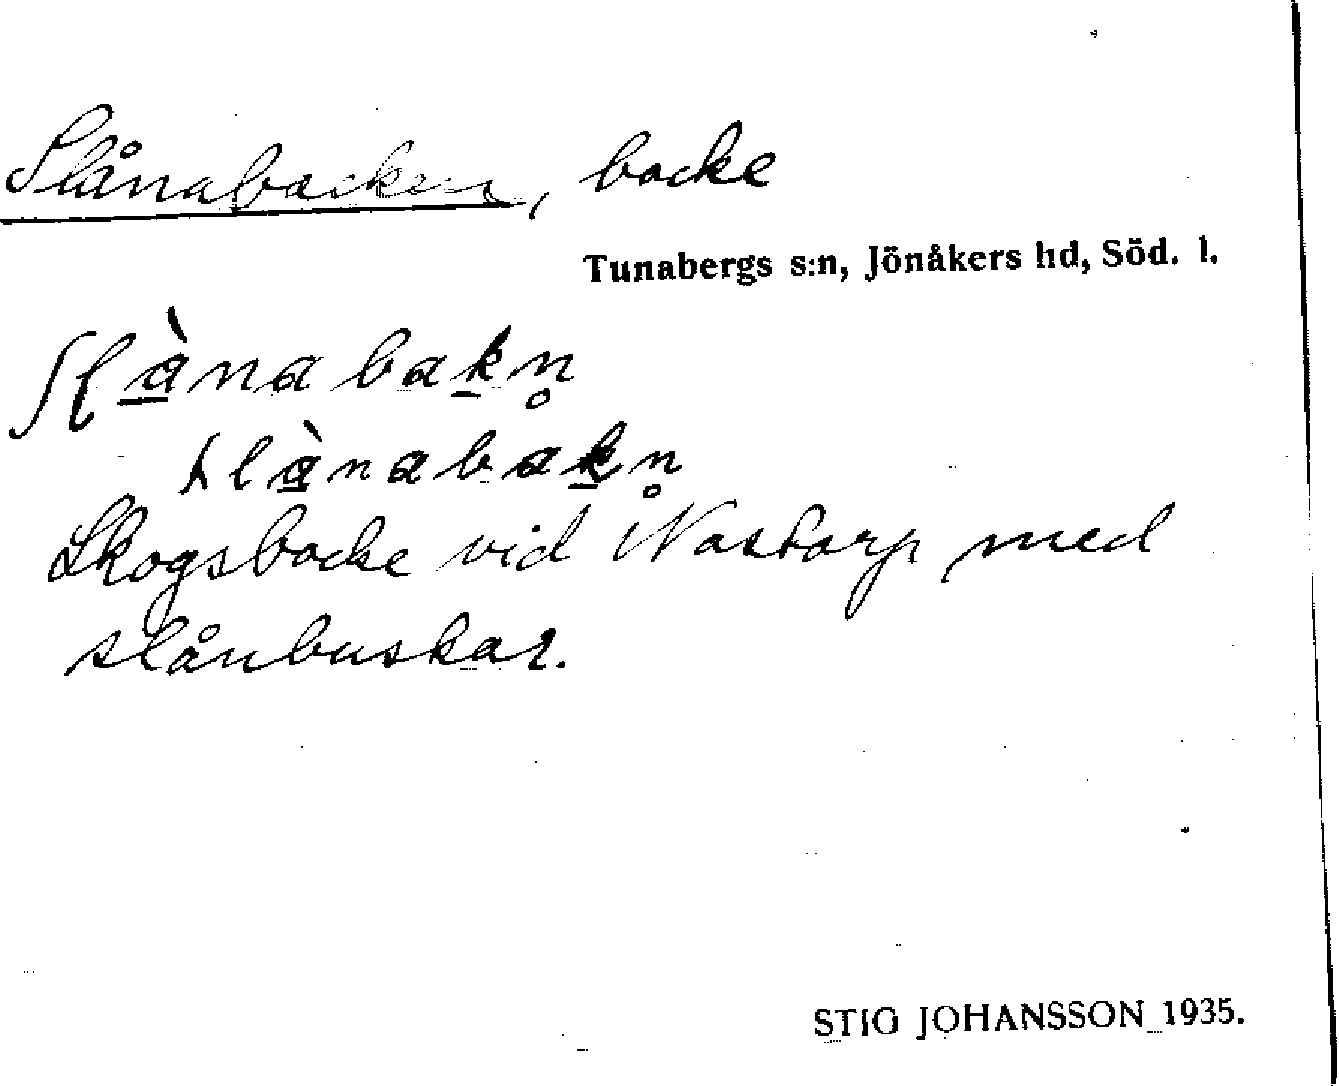 Slånabacken, backe
Tunabergs s:n, Jönåkers hd, Söd. l.
ʃɭànabak̲n̥
slànabak̲n̥
Skogsbacke vid Nastorp med
slånbuskar.
STIG JOHANSSON 1935.